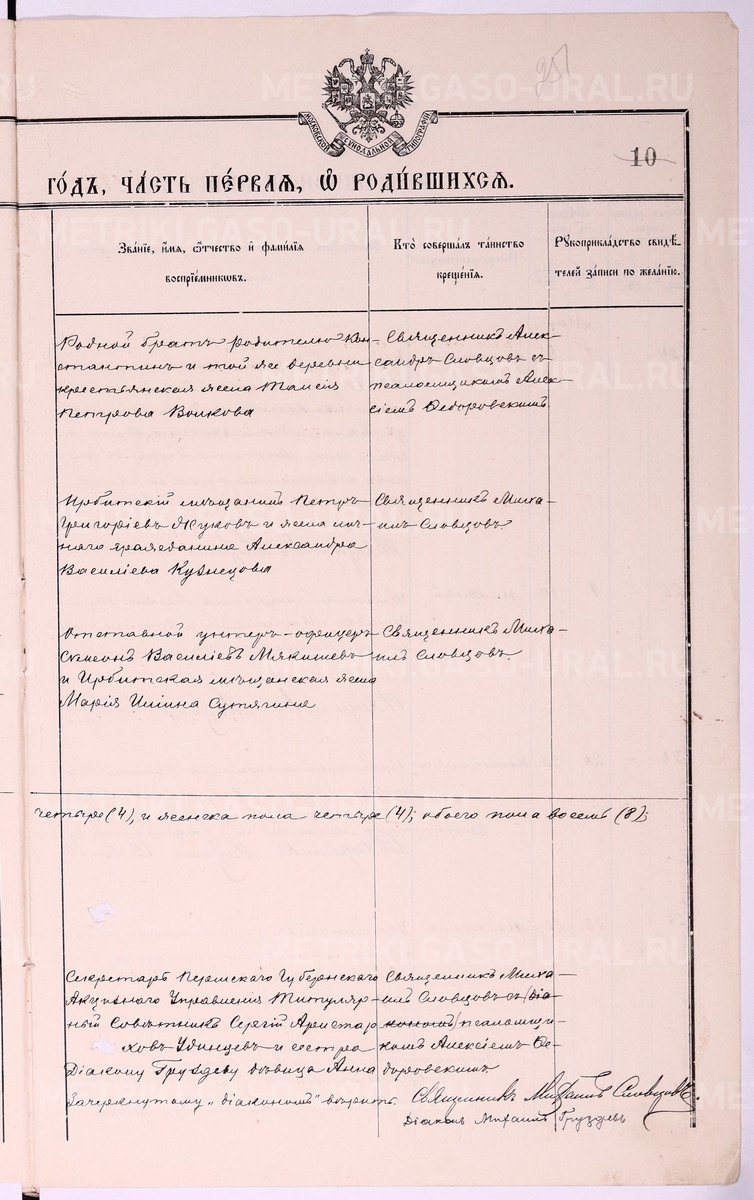 METRIKI.GASO-URAL.RU
25
МОСКОВСКОЙ СѴНОДАЛЬНОЙ ТИПОГРАФІИ
10
ГО́ДЪ, ЧА́СТЬ ПЕ́РВАЯ, Ѡ҆ РОДИ́ВШИХСЯ.
Зва́нїе, и҆́мя, ѻ҆́тчество и҆ фами́лїя
воспрїе́мникωвъ.
Кто̀ соверша́лъ та́инство
креще́нїя.
Рꙋкоприкла́дство свидѣ́-
телей за́писи по жела́нїю.
Родной братъ родителю Кон-
стантинъ и той же деревни
крестьянская жена Таисія
Петрова Волкова
Священникъ Алек-
сандръ Словцовъ съ
псаломщикомъ Алек-
сіемъ Ѳедоровскимъ
Ирбитскій мѣщанинъ Петръ
Григоріевъ Жуковъ и жена лич-
наго гражданина Александра
Василіева Кузнецова
Священникъ Миха-
илъ Словцовъ
Отставной унтеръ-офицеръ
Симеонъ Василіевъ Мякишевъ
и Ирбитская мѣщанская жена
Марія Сутягина
Священникъ Миха-
илъ Словцовъ.
четыре (4), и женска пола четыре (4); обоего пола восемь (8);
Секретарь Пермскаго Губернскаго
Акцизнаго Управленія Титуляр-
ный Совѣтникъ Сергій Аристар-
ховъ Удинцевъ и сестра
Діакону Груздеву дѣвица Анна
Священникъ Миха-
илъ Словцовъ съ (діа-
кономъ) псаломщи-
комъ Алексіемъ Ѳе-
доровскимъ
Зачеркнутому „діакономъ" вѣрить. Священникъ Михаилъ Словцовъ.
Діаконъ Михаилъ Груздевъ